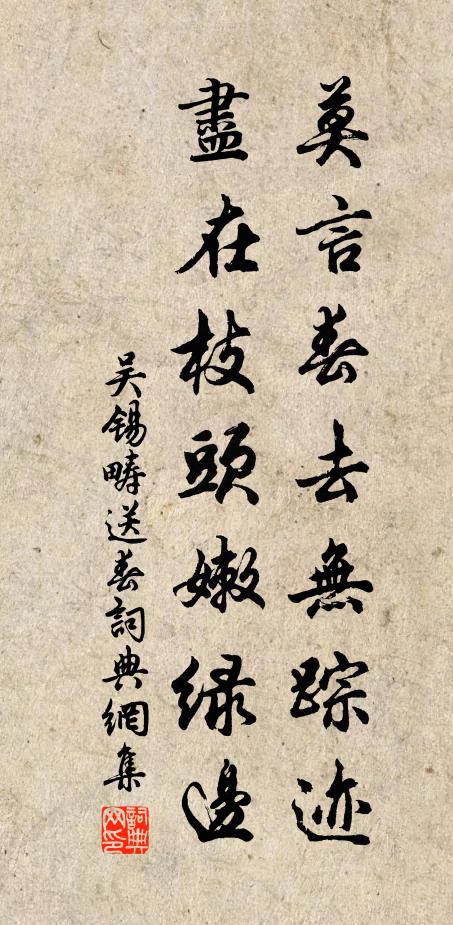 莫言春去無踪迹
盡在枝頭嫩緑邊
吴錫疇送春詞典網集
詞典网印